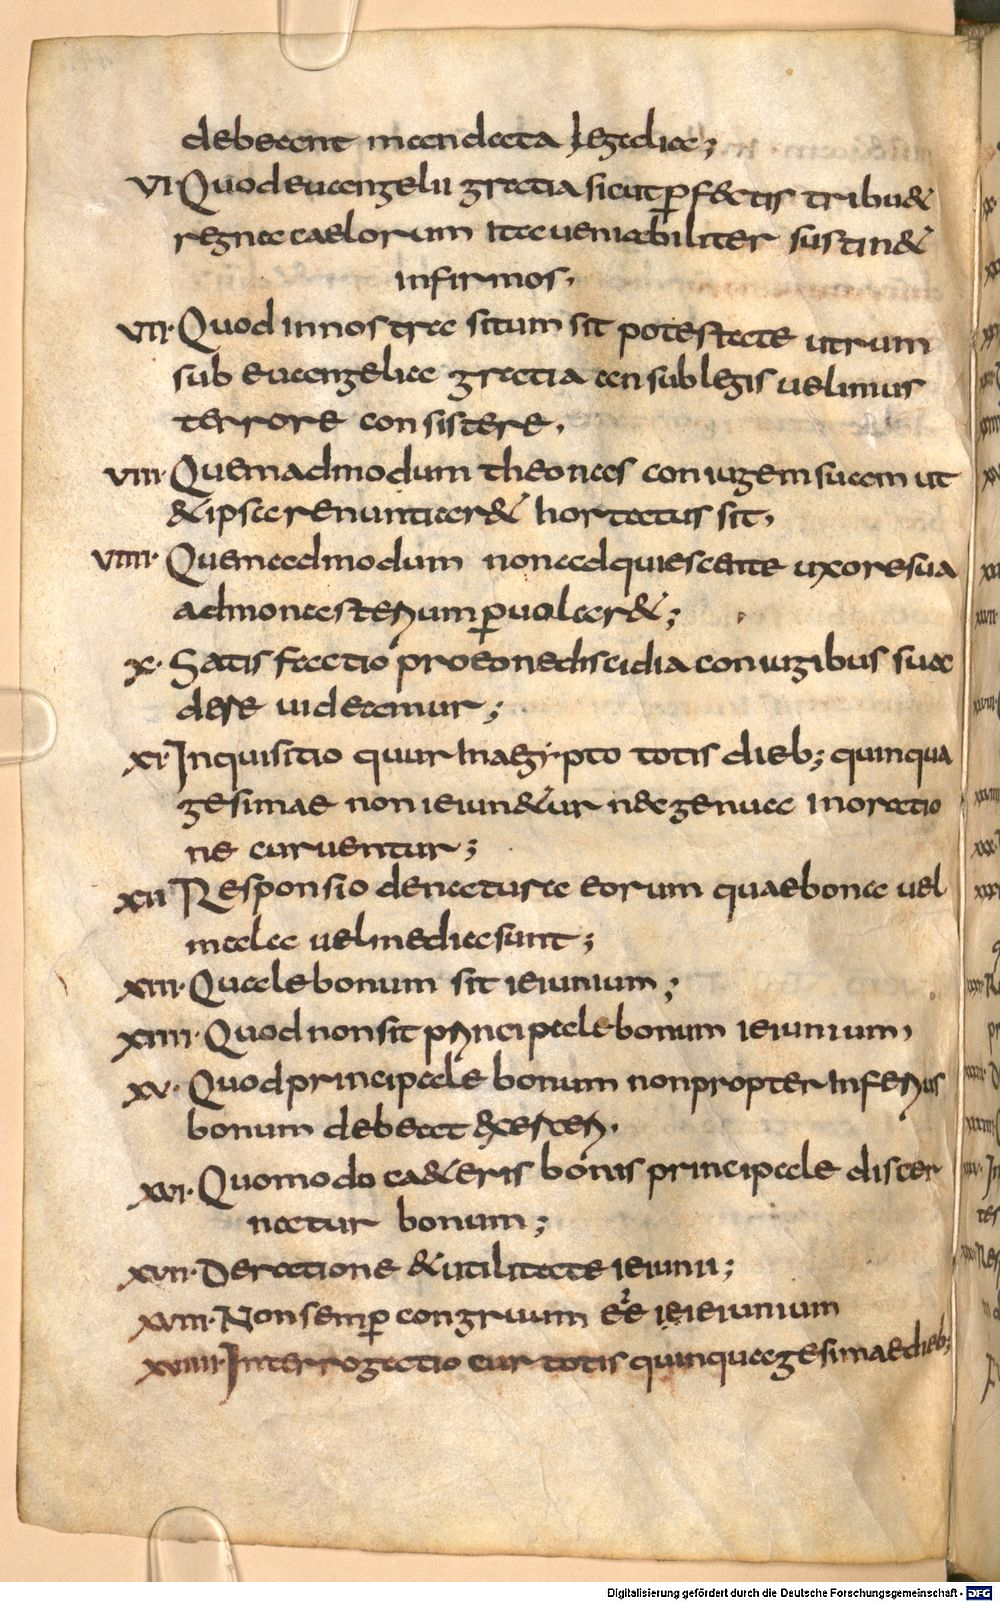 debeant mandata legalia;
VI Quod euangelii gratia sicut ꝑfectis tribu&
regna caelorum ita ueniabiliter sustin&
infirmos.
VII· Quod in nostra situm sit potestate utrum
sub euangelica gratia an sub legis uelimus
terrore consistere.
VIII· Quemadmodum theonas coniugem suam ut
& ipsa renuntiar& hortatus sit.
VIIII· Quemadmodum non adquiescente uxore sua
ad monasterium ꝑuolar&;
X· Satisfactio pro eo ne discidia coniugibus sua
dese uideamur;
XI· Inquisitio quur in aegypto totis dieb; quinqua
gesimae non ieiun&ur nec genua in oratio
ne curuentur;
XII Responsio de natura eorum quae bona uel
mala uel media sunt;
XIII· Quale bonum sit ieiunium;
XIIII· Quod non sit principale bonum ieiunium,
XV· Quod principale bonum non propter inferius
bonum debeat exerceri.
XVI· Quomodo a c&eris bonis principale discer
natur bonum;
XVII· De ratione & utilitate ieiunii;
XVIII· Non semꝑ congruum eē ieieiunium
XVIIII· Interrogatio cur totis quinquagesimae dieb;
Digitalisierung gefördert durch die Deutsche Forschungsgemeinschaft - DFG